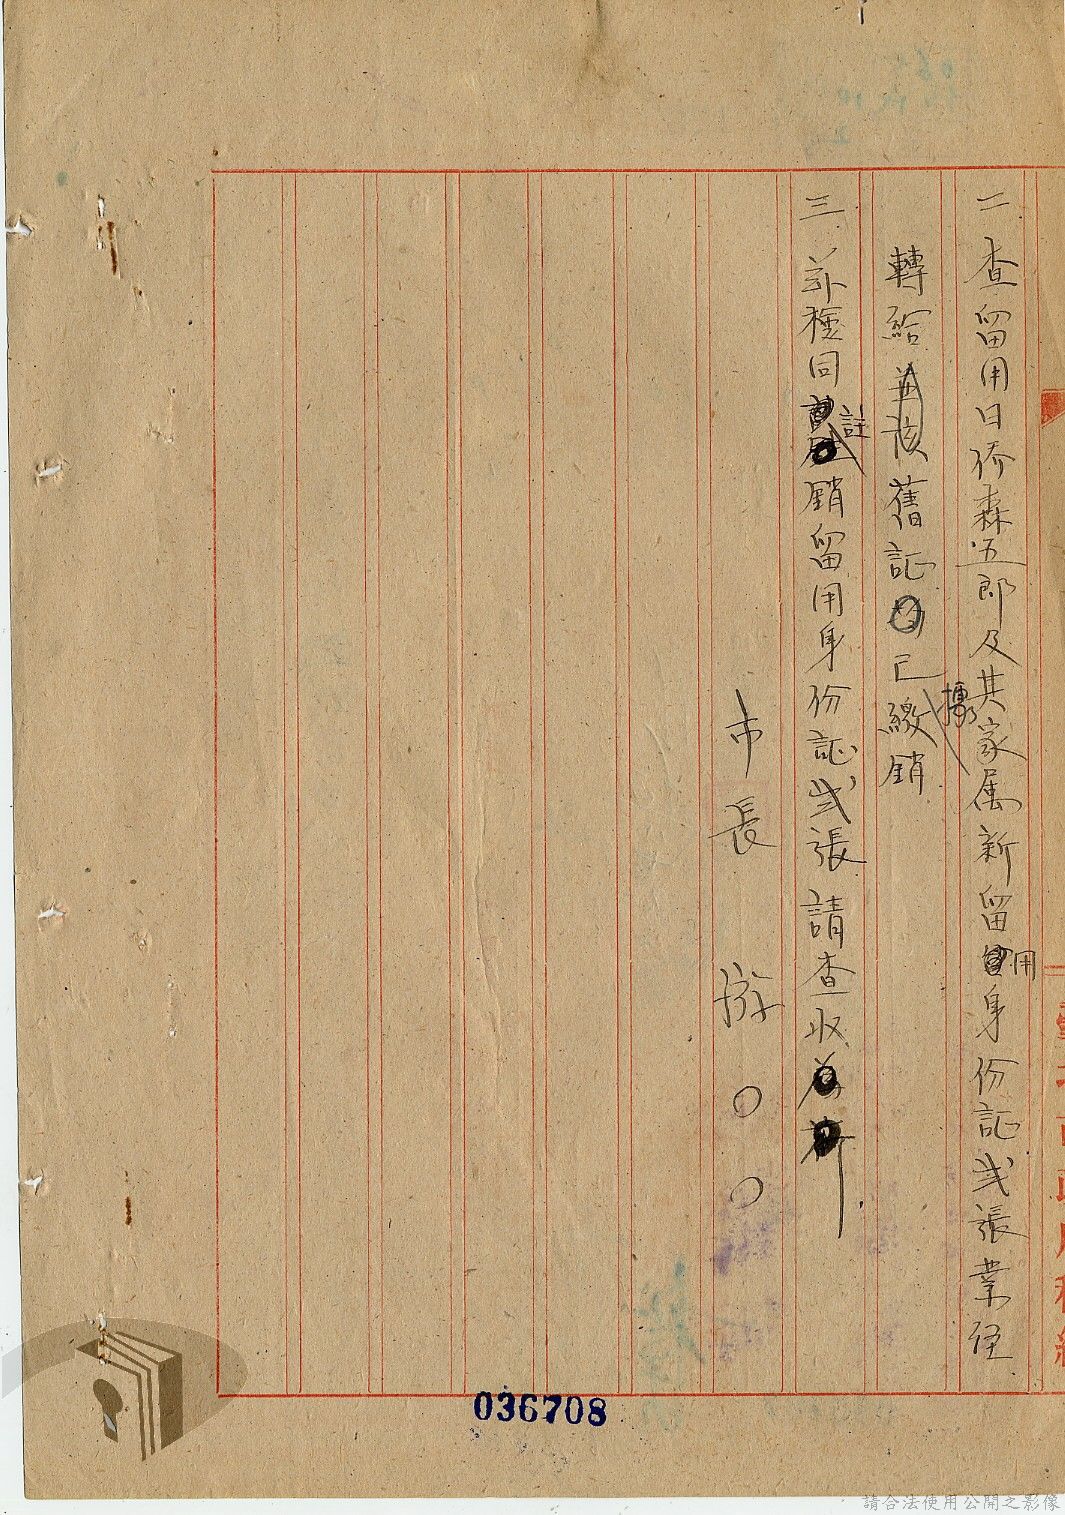 二 查留用日侨森五郎及其家属新留用身份証弍張業経
轉給舊証已據繳銷
三 茲檢同註銷留用身份証弍張請查收
市長 游○○
036708
請合法使用公開之影像